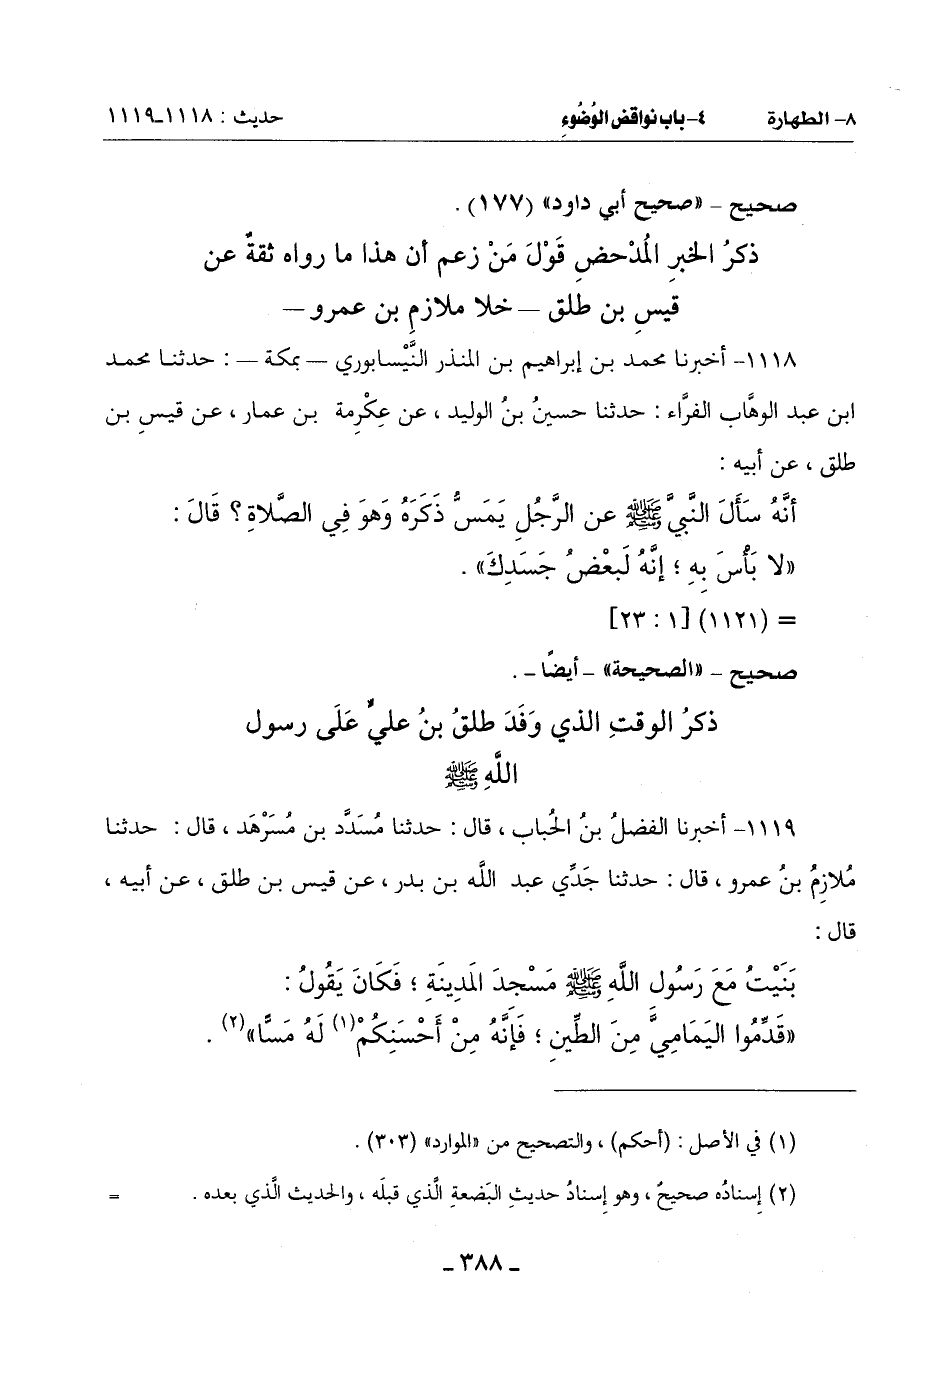 ٨- الطهارة ٤- باب نواقض الوُضُوءِ حديث : ١١١٨-١١١٩
صحيح - «صحيح أبي داود» (١٧٧) .
ذكرُ الخبرِ المُدْحضِ قَوْلَ مَنْ زعم أن هذا ما رواه ثقةٌ عن
قيسِ بن طلق – خلا ملازمِ بن عمرو –
١١١٨- أخبرنا محمد بن إبراهيم بن المنذر النَّيْسابوري – بمكة – : حدثنا محمد
ابن عبد الوهَّاب الفرَّاء : حدثنا حسينُ بنُ الوليد ، عن عِكْرِمة بن عمار ، عن قيسِ بن
طلق ، عن أبيه :
أنَّهُ سَأَلَ النَّبيَّ ﷺ عن الرَّجُلِ يَمَسُّ ذَكَرَهُ وَهوَ فِي الصَّلاةِ ؟ قَالَ :
«لا بَأْسَ بِهِ ؛ إنَّهُ لَبعْضُ جَسَدِكَ» .
= (١١٢١) [١ : ٢٣]
صحيح - «الصحيحة» - أيضًا - .
ذكرُ الوقتِ الذي وَفَدَ طلقُ بنُ عليٍّ عَلَى رسول
اللَّهِ ﷺ
١١١٩- أخبرنا الفضلُ بنُ الحُباب ، قال : حدثنا مُسَدَّد بن مُسَرْهَد ، قال : حدثنا
مُلازِمُ بنُ عمرو ، قال : حدثنا جَدِّي عبد اللَّه بن بدر ، عن قيس بن طلق ، عن أبيه ،
قال :
بَنَيْتُ مَعَ رَسُولِ اللَّهِ ﷺ مَسْجدَ المَدِينَةِ ؛ فَكَانَ يَقُولُ :
«قَدِّمُوا اليَمَامِيَّ مِنَ الطِّينِ ؛ فَإنَّهُ مِنْ أَحْسَنِكُمْ(١) لَهُ مَسًّا»(٢) .
(١) في الأصل : (أحكم) ، والتصحيح من «الموارد» (٣٠٣) .
(٢) إسنادُه صحيحٌ ، وهو إسنادُ حديثِ البَضعةِ الَّذي قبلَه ، والحديث الَّذي بعده . =
- ٣٨٨ -